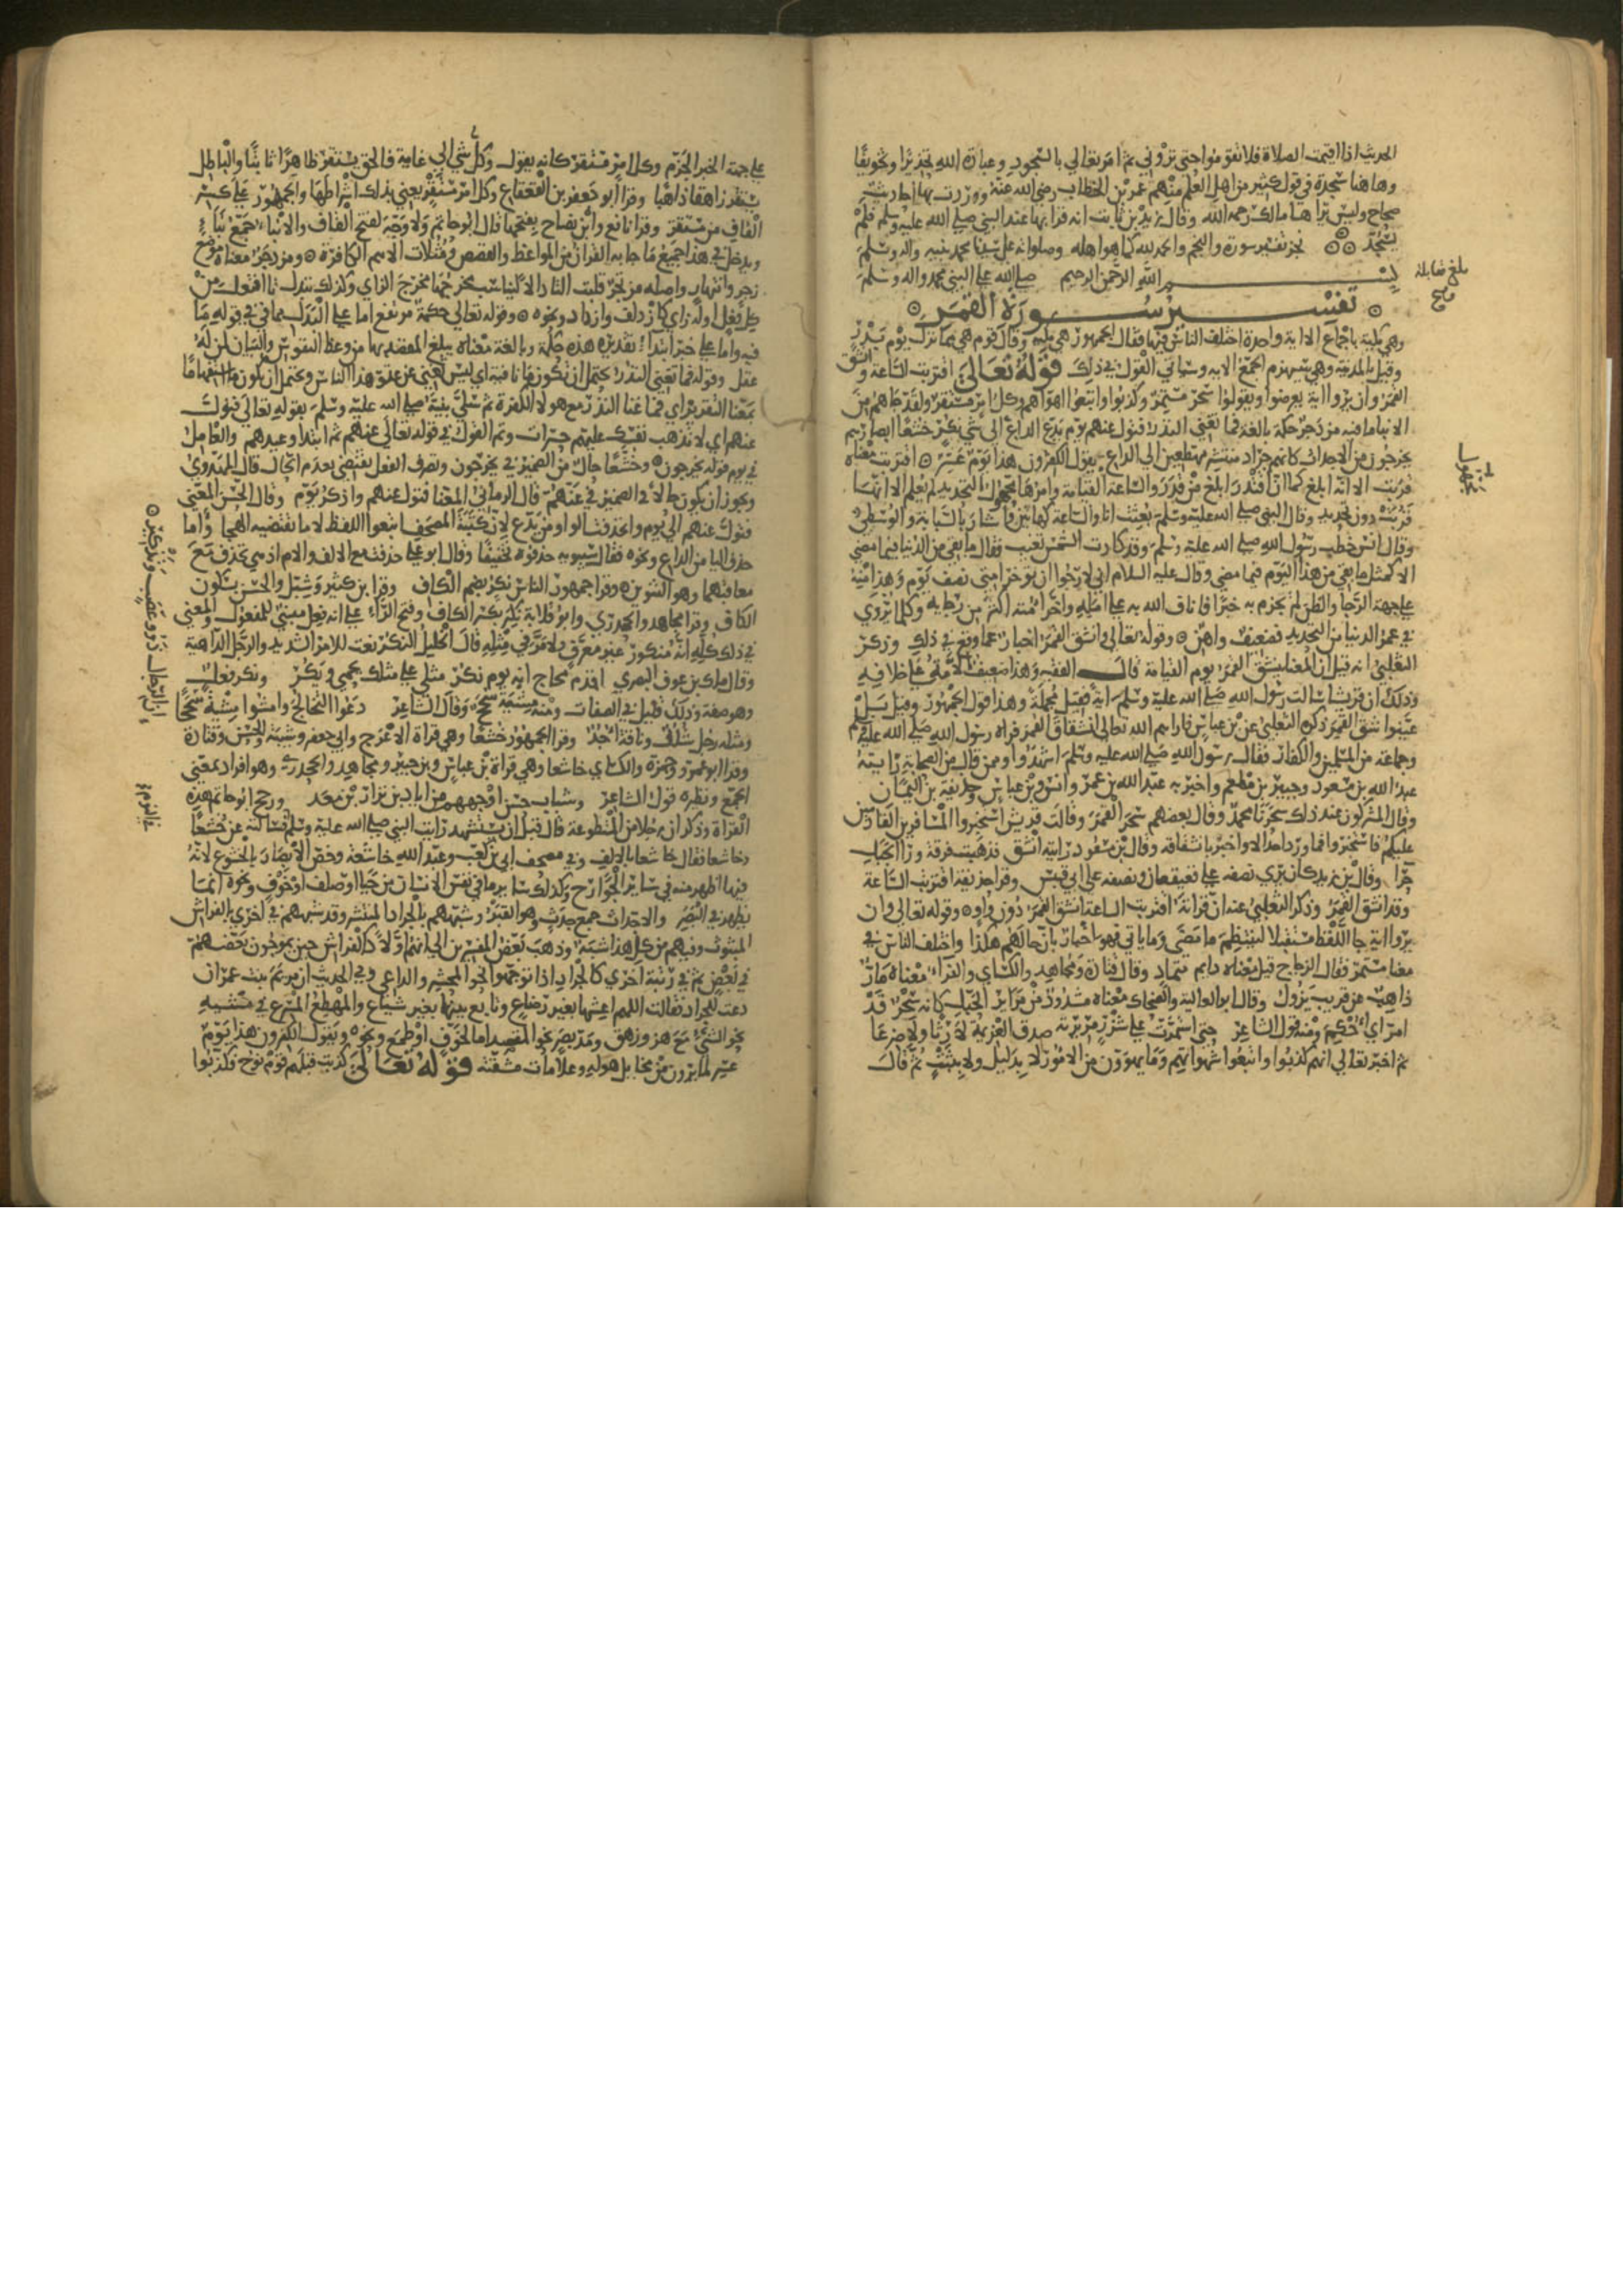 الحديث اذا اقيمت الصلاة فلا تقوموا حتى تروني ثم امر تعالي بالسجود وعبادة الله تحذيرا وتخويفا
وها هنا سجدة في قول كثير من اهل العلم منهم عمر بن الخطاب رضي الله عنه ووردت بها احاديث
صحاح وليس يراها مالك رحمه الله وقال زيد بن ثابت انه قرا بها عند النبي صلي الله عليه وسلم فلم
يسجد نجز تفسير سورة والنجم والحمد لله كما هو اهله وصلواته علي سيدنا محمد نبيه واله وسلم
بسم الله الرحمن الرحيم صلي الله علي النبي محمد واله وسلم
تفسير سورة القمر
وهي مكية باجماع الا اية واحدة اختلف الناس فيها فقال الجمهور هي مكية وقال قوم هي مما نزل يوم بدر
وقيل بالمدينة وهي سيهزم الجمع الايه وسياتي القول في ذلك قوله تعالي اقتربت الساعة وانشق
القمر وان يروا اية يعرضوا ويقولوا سحر مستمر وكذبوا واتبعوا اهواهم وكل امر مستقر ولقد جاهم من
الانبا ما فيه مزدجر حكمة بالغة فما تغني النذر فتول عنهم يوم يدع الداع الي شي نكر خشعا ابصارهم
يخرجون من الاجداث كانهم جراد منتشر مهطعين الي الداع يقول الكفرون هذا يوم عسر اقتربت معناه
قربت الا انه ابلغ كما ان اقتدر ابلغ من قدر والساعة القيامة وامرها مجهول التحديد لم يعلم الا انها
قربت دون تحديد وقال النبي صلي الله عليه وسلم بعثت انا والساعة كهاتين واشار بالسبابة والوسطي
وقال انس خطب رسول الله صلي الله عليه وسلم وقد كادت الشمس تغيب فقال ما بقي من الدنيا فيما مضي
الا كمثل ما بقي من هذا اليوم فيما مضي وقال عليه السلام اني لارجوا ان يوخر امتي نصف يوم وهذا منه
علي جهة الرجا والظن لم يجزم به خبرا فاناف الله به علي امله واخر امته اكثر من رجايه وكلما يروي
في عمر الدنيا من التحديد فضعيف واهن وقوله تعالي وانشق القمر اخبار عما وقع في ذلك وذكر
الثعلبي انه قيل ان المعنا ينشق القمر يوم القيامة قال الفقيه وهذا ضعيف الامة علي خلافه
وذلك ان قريشا سالت رسول الله صلي الله عليه وسلم اية فقيل مجملة وهذا قول الجمهور وقيل بل
عينوا شق القمر ذكره الثعلبي عن بن عباس فاراهم الله تعالي انشقاق القمر فراه رسول الله صلي الله عليه وسلم
وجماعة من المسلمين والكفار فقال رسول الله صلي الله عليه وسلم اشهدوا وممن قال من الصحابة رايته
عبد الله بن مسعود وجبير بن مطعم واخبر به عبد الله بن عمر وانس وبن عباس وحذيفة بن اليمان
وقال المشركون عند ذلك سحرنا محمد وقال بعضهم سحر القمر وقالت قريش استخبروا المسافرين القادمين
عليكم فاستخبروا فما ورد احد الا واخبر بانشقاقه وقال بن مسعود رايته انشق فذهبت فرقة ورا الجبل
حرا وقال بن زيد كان يري نصفه علي قعيقعان ونصفه علي ابي قبيس وقرا حذيفة اقتربت الساعة
وقد انشق القمر وذكر الثعلبي عنه ان قراته اقتربت الساعة انشق القمر دون واو وقوله تعالي وان
يروا اية جا اللفظ مستقبلا لينتظم ما مضي وما ياتي فهو اخبار بان حالهم هكذا واختلف الناس في
معنا مستمر فقال الزجاج قيل معناه دايم متماد وقال قتادة ومجاهد والكساي والفراء معناه مار
ذاهب عن قريب يزول وقال ابو العالية والضحاك معناه مشدود من مراير الحبل كانه سحر قد
امر اي احكم ومنه قول الشاعر حتي استمرت علي شزر مريرته صدق العزيمة لا رتا ولا ضرعا
ثم اخبر تعالي انهم كذبوا واتبعوا شهواتهم وما يهوون من الامور لا بدليل ولا بتثبت ثم قال
بلغ مقابلة
صح
علي جهة الخبر الجزم وكل امر مستقر كانه يقول وكل شي الي غاية فالحق يستقر ظاهرا ثابتا والباطل
يستقر زاهقا ذاهبا وقرا ابو جعفر بن القعقاع وكل امر مستقر يعني بذلك اشراطها والجمهور علي كسر
القاف من مستقر وقرا نافع وابن نصاح بفتحها قال ابو حاتم ولا وجه لفتح القاف والانباء جمع نبا
ويدخل في هذا جميع ما جا به القران من المواعظ والقصص ومثلات الامم الكافرة ومزدجر معناه موضع
زجر وانتهاء واصله مزتجر قلبت التا دالا ليناسب مخرجها مخرج الزاي وكذلك تبدل تا افتعل من
كل فعل اوله زاي كازدلف وازداد ونحوه وقوله تعالي حكمة مرتفع اما علي البدل من ما في قوله ما
فيه واما علي خبر ابتدا تقديره هذه حكمة وبالغة معناه يبلغ المقصد بها من وعظ النفوس والبيان لمن له
عقل وقوله فما تغني النذر يحتمل ان تكون ما نافية اي ليس تغني عن عتو هذا الناس ويحتمل ان يكون ما استفهاما
بمعنا التقرير اي فما غنا النذر مع هولا الكفرة ثم سلي نبيه صلي الله عليه وسلم بقوله تعالي فتول
عنهم اي لا تذهب نفسك عليهم حسرات وتم القول في قوله تعالي عنهم ثم ابتدا وعيدهم والعامل
في يوم قوله يخرجون وخشعا حال من الضمير في يخرجون وتصرف الفعل يقتضي تقدم الحال قال المهدوي
ويجوز ان يكون حالا في الضمير في عنهم قال الرماني المعنا فتول عنهم واذكر يوم وقال الحسن المعني
فتول عنهم الي يوم وانحذفت الواو من يدع لان كتبة المصحف اتبعوا اللفظ لا ما تقتضيه الهجا واما
حذف اليا من الداع ونحوه فقال سيبويه حذفوه تخفيفا وقال ابو علي حذفت مع الالف والام اذ هي تحذف مع
معاقبهما وهو التنوين وقرا جمهور الناس نكر بضم الكاف وقرا بن كثير وشبل والحسن بسكون
الكاف وقرا مجاهد والجحدري وابو قلابة نكر بكسر الكاف وفتح الراء علي انه فعل مبني للمفعول والمعني
في ذلك كله انه منكور غير معروف ولا مري في مثله قال الخليل النكر نعت للامر الشديد والرجل الداهية
وقال ملك بن عوف البصري اقدم محاج انه يوم نكر مثلي علي مثلك يحمي ويكر ونكر فعل
وهو صفة وذلك قليل في الصفات ومنه مشية سجح وقال الشاعر دعوا التخاجؤ وامشوا مشية سجحا
ومثله رجل شلل وناقة اجد وقرا الجمهور خشعا وهي قراة الاعرج وابي جعفر وشيبة والحسن وقتادة
وقرا ابو عمرو وحمزة والكساي خاشعا وهي قراة بن عباس وبن جبير ومجاهد والجحدري وهو افراد بمعني
الجمع ونظيره قول الشاعر وشباب حسن اوجههم من اياد بن نزار بن معد ورجح ابو حاتم هذه
القراة وذكر ان رجلا من المتطوعة قال قبل ان يستشهد رايت النبي صلي الله عليه وسلم فسالته عن خشعا
وخاشعا فقال خاشعا بالالف وفي مصحف ابي بن كعب وعبد الله خاشعة وخص الابصار بالخشوع لانه
فيها اظهر منه في ساير الجوارح وكذلك ساير ما في نفس الانسان من حيا او صلف او خوف ونحوه انما
يظهر في البصر والاجداث جمع جدث وهو القبر وشبههم بالجراد المنتشر وقد شبههم في اخري بالفراش
المبثوث وفيهم من كل هذا شبه وذهب بعض المفسرين الي انهم اولا كالفراش حين يموجون بعضهم
في بعض ثم في رتبة اخري كالجراد اذا توجهوا نحو المحشر والداعي وفي الحديث ان مريم بنت عمران
دعت للجراد فقالت اللهم اعشها بغير رضاع وتابع بينها بغير شياع والمهطع المسرع في مشيه
نحو الشيء مع هز ورهق ومد بصر نحو المقصد اما لخوف او طمع ونحوه ويقول الكفرون هذا يوم
عسر لما يرون من مخايل هوله وعلامات مشقته قوله تعالي كذبت قبلهم قوم نوح فكذبوا
ان الرجال ذوو عصب وتذكير